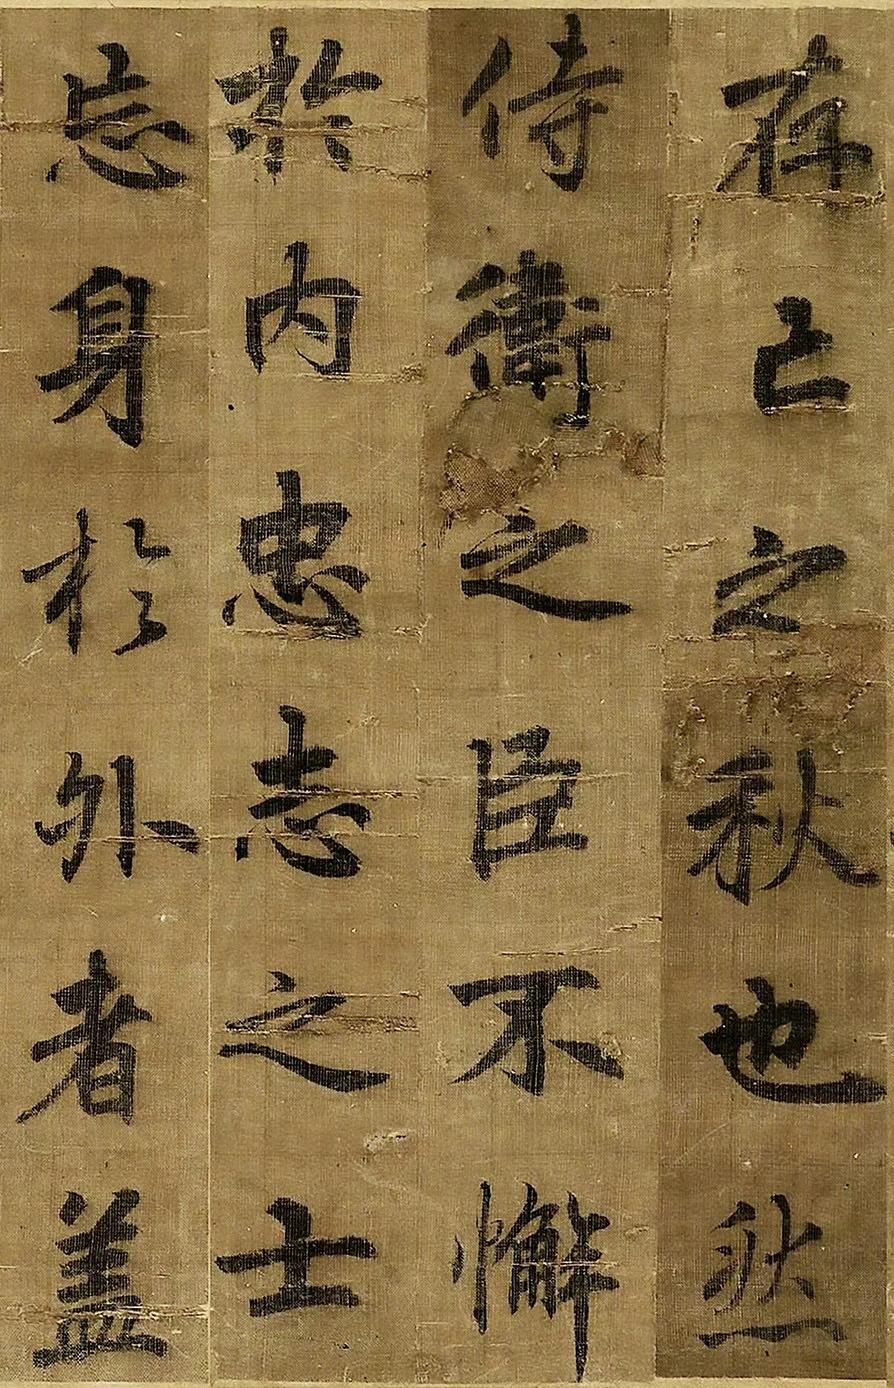 存亡之秋也然
侍衛之臣不懈
於内忠志之士
忘身於外者盖